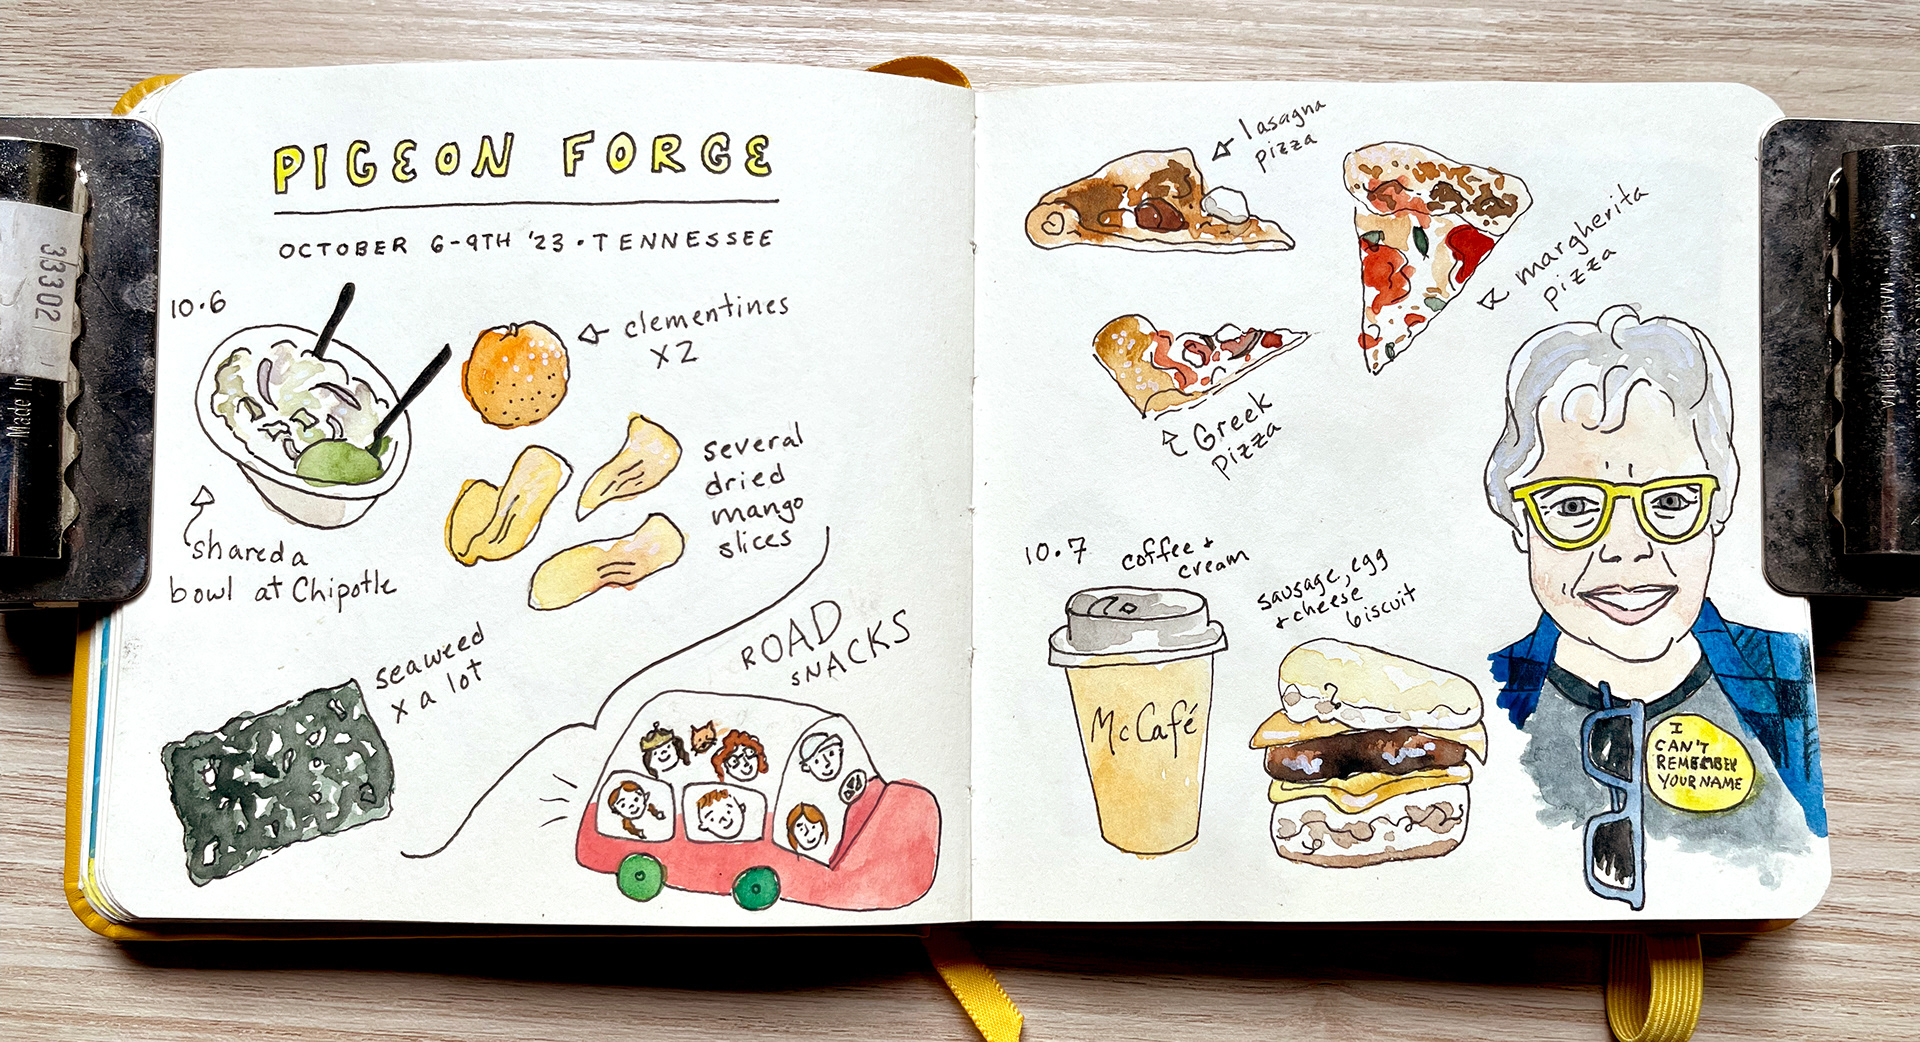 PIGEON FORGE
OCTOBER 6-9TH '23 • TENNESSEE
10.6
clementines
x 2
several
dried
mango
slices
shared a
bowl at Chipotle
seaweed
x a lot
ROAD
SNACKS
lasagna
pizza
margherita
pizza
Greek
pizza
10.7
coffee +
cream
sausage, egg
+ cheese
biscuit
McCafé
I
CAN'T
REMEMBER
YOUR NAME
33302
Made In
MADE IN CHINA